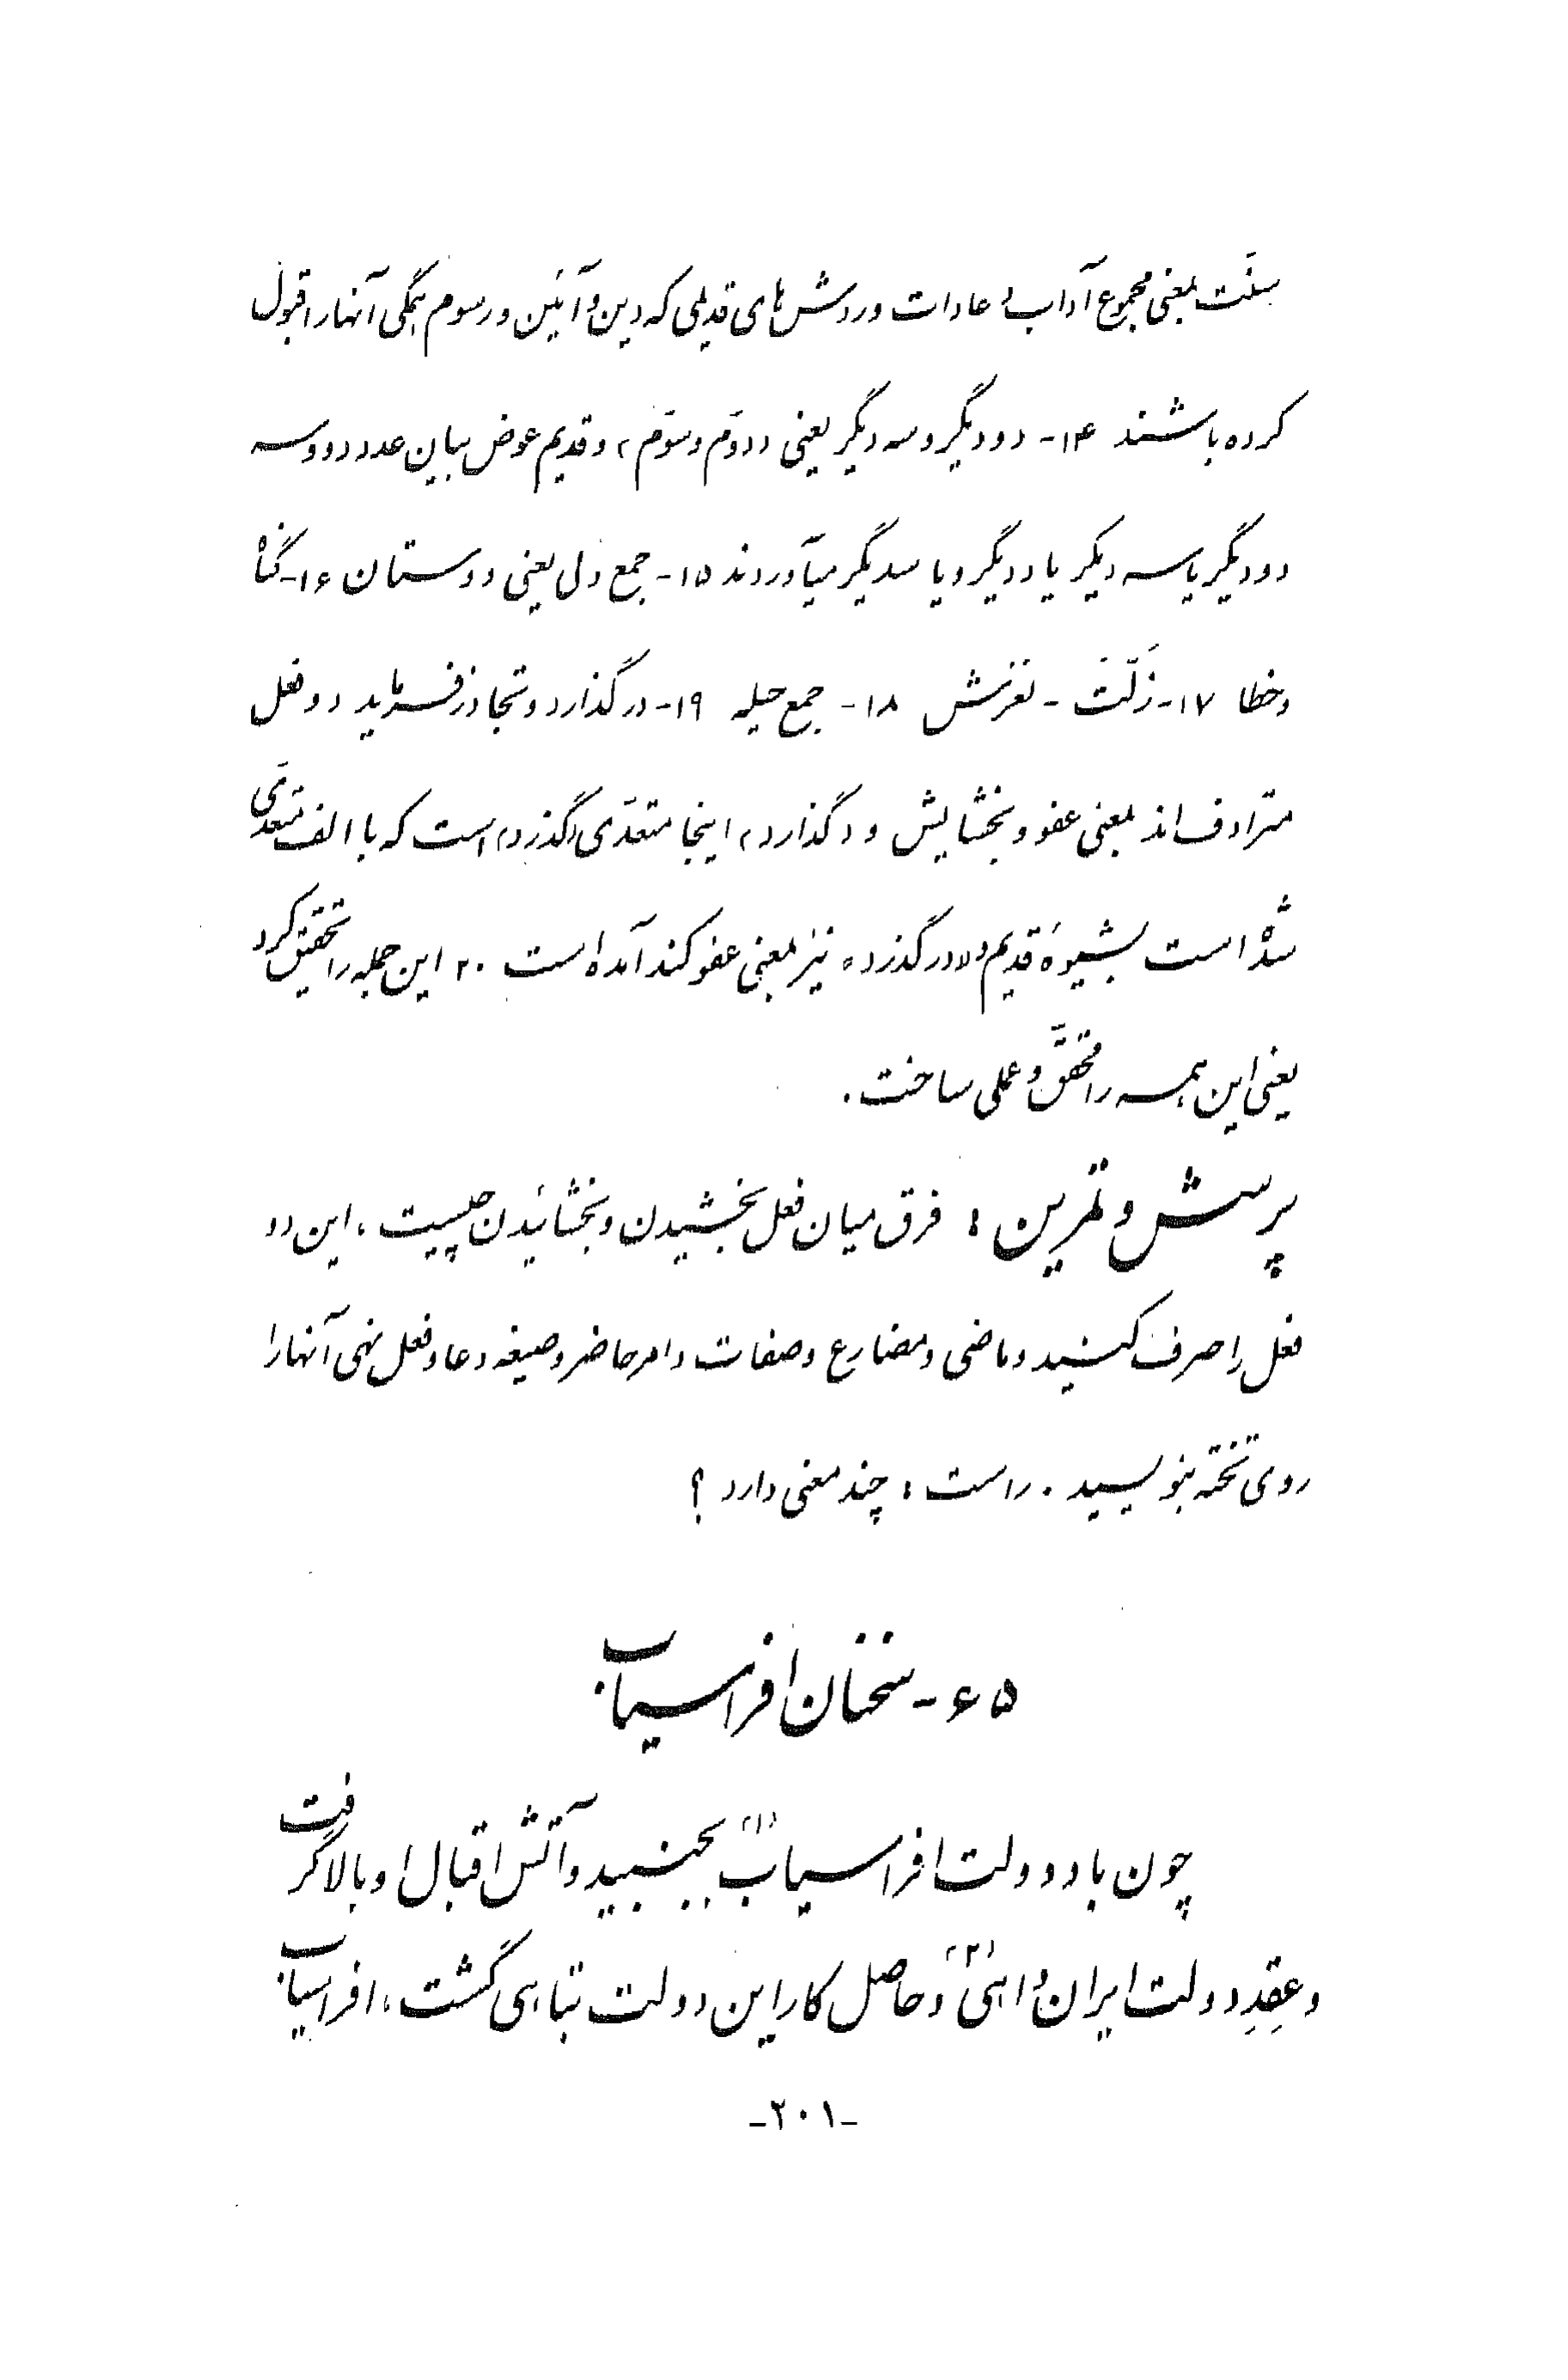 سنّت بمعنی مجموع آداب و عادات و روش‌های قدیمی که دین و آئین و رسوم همگی آنها را قبول
کرده باشند ۱۴- دو دیگر و سه دیگر یعنی «دوّم و سوّم» و قدیم عوض بیان عدد دو و سه
دو دیگر یا سه دیگر یا ددیگر و یا سدیگر میآوردند ۱۵- جمع ولی یعنی دوستان ۱۶- گناه
و خطا ۱۷- زَلّت - لغزش ۱۸- جمع حیله ۱۹- درگذارد و تجاوز فرماید دو فعل
مترادف‌اند بمعنی عفو و بخشایش و «گذارد» اینجا متعدّی «گذرد» است که با الف متعدّی
شده است بشیوهٔ قدیم و «درگذرد» نیز بمعنی عفو کند آمده است ۲۰ این جمله را تحقیق کرد
یعنی این همه را محقّق و عملی ساخت.
پرسش و تمرین : فرق میان فعل بخشیدن و بخشائیدن چیست ، این دو
فعل را صرف کنید و ماضی و مضارع و صفات و امر حاضر و صیغه دعا و فعل نهی آنها را
روی تخته بنویسید . راست : چند معنی دارد ؟
۶۵ - سخنان افراسیاب
چون باد دولت افراسیاب (۱) بجنبید و آتش اقبال او بالا گرفت
و عِقدِ دولت ایران واهی (۲) و حاصل کار این دولت تباهی گشت ، افراسیاب
-۲۰۱-